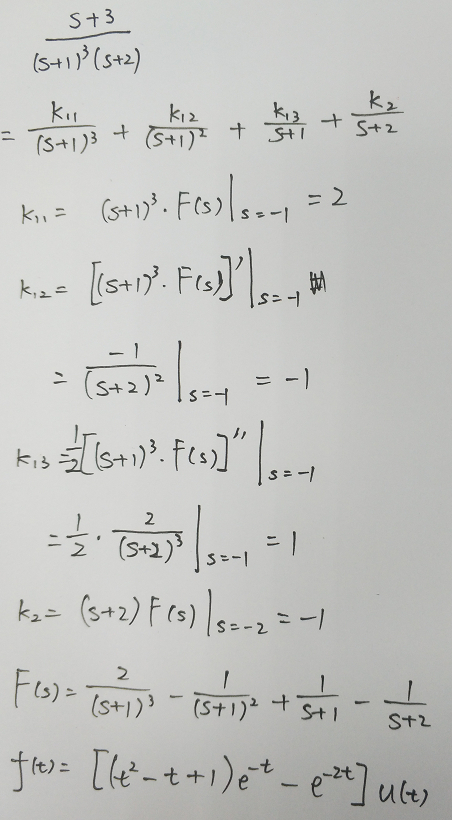 (s+3)/((s+1)³(s+2))
= k₁₁/(s+1)³ + k₁₂/(s+1)² + k₁₃/(s+1) + k₂/(s+2)
k₁₁ = (s+1)³·F(s)|s=-1 = 2
k₁₂ = [(s+1)³·F(s)]'|s=-1
= -1/(s+2)²|s=-1 = -1
k₁₃ = 1/2[(s+1)³·F(s)]''|s=-1
= 1/2 · 2/(s+2)³|s=-1 = 1
k₂ = (s+2)F(s)|s=-2 = -1
F(s) = 2/(s+1)³ - 1/(s+1)² + 1/(s+1) - 1/(s+2)
f(t) = [(t²-t+1)e⁻ᵗ - e⁻²ᵗ]u(t)